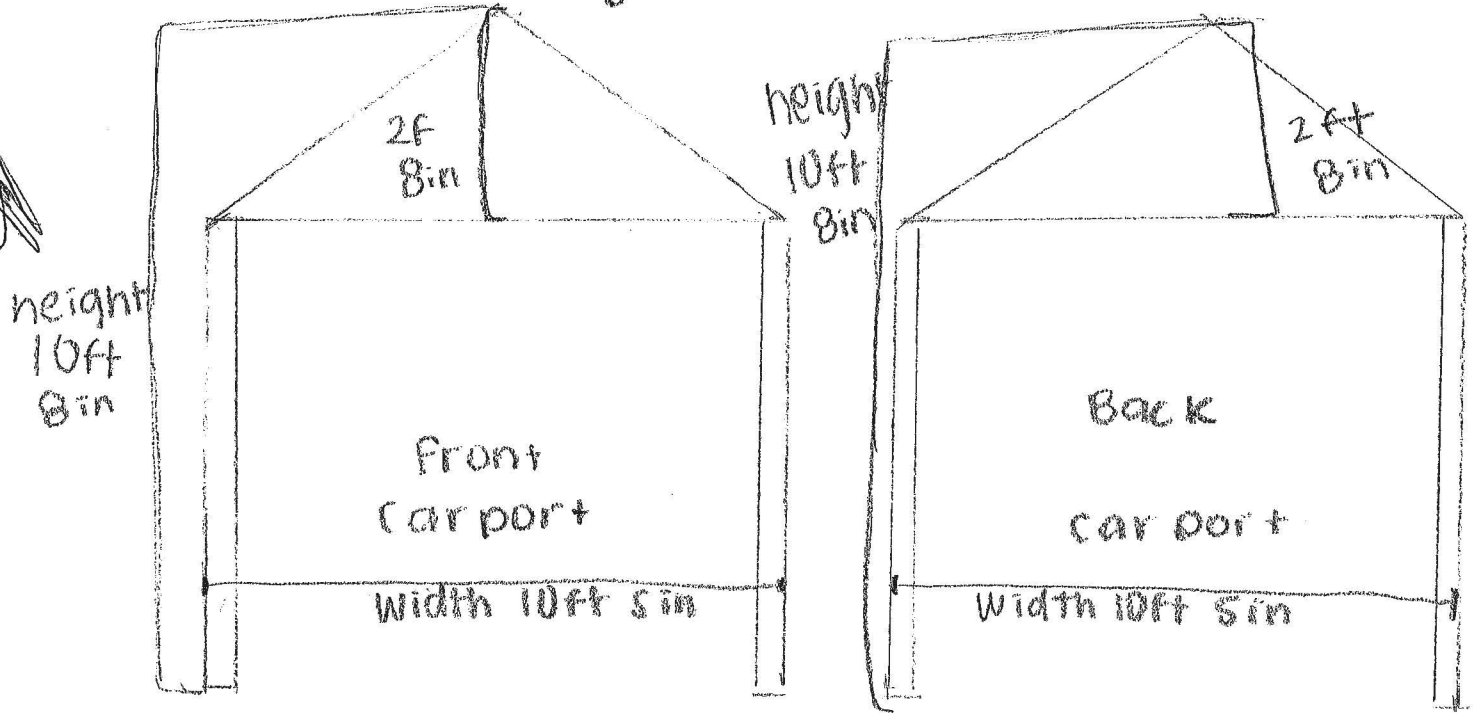 2f
8in
height
10ft
8in
Front
carport
Width 10ft 5in
height
10ft
8in
2ft
8in
Back
carport
Width 10ft 5in